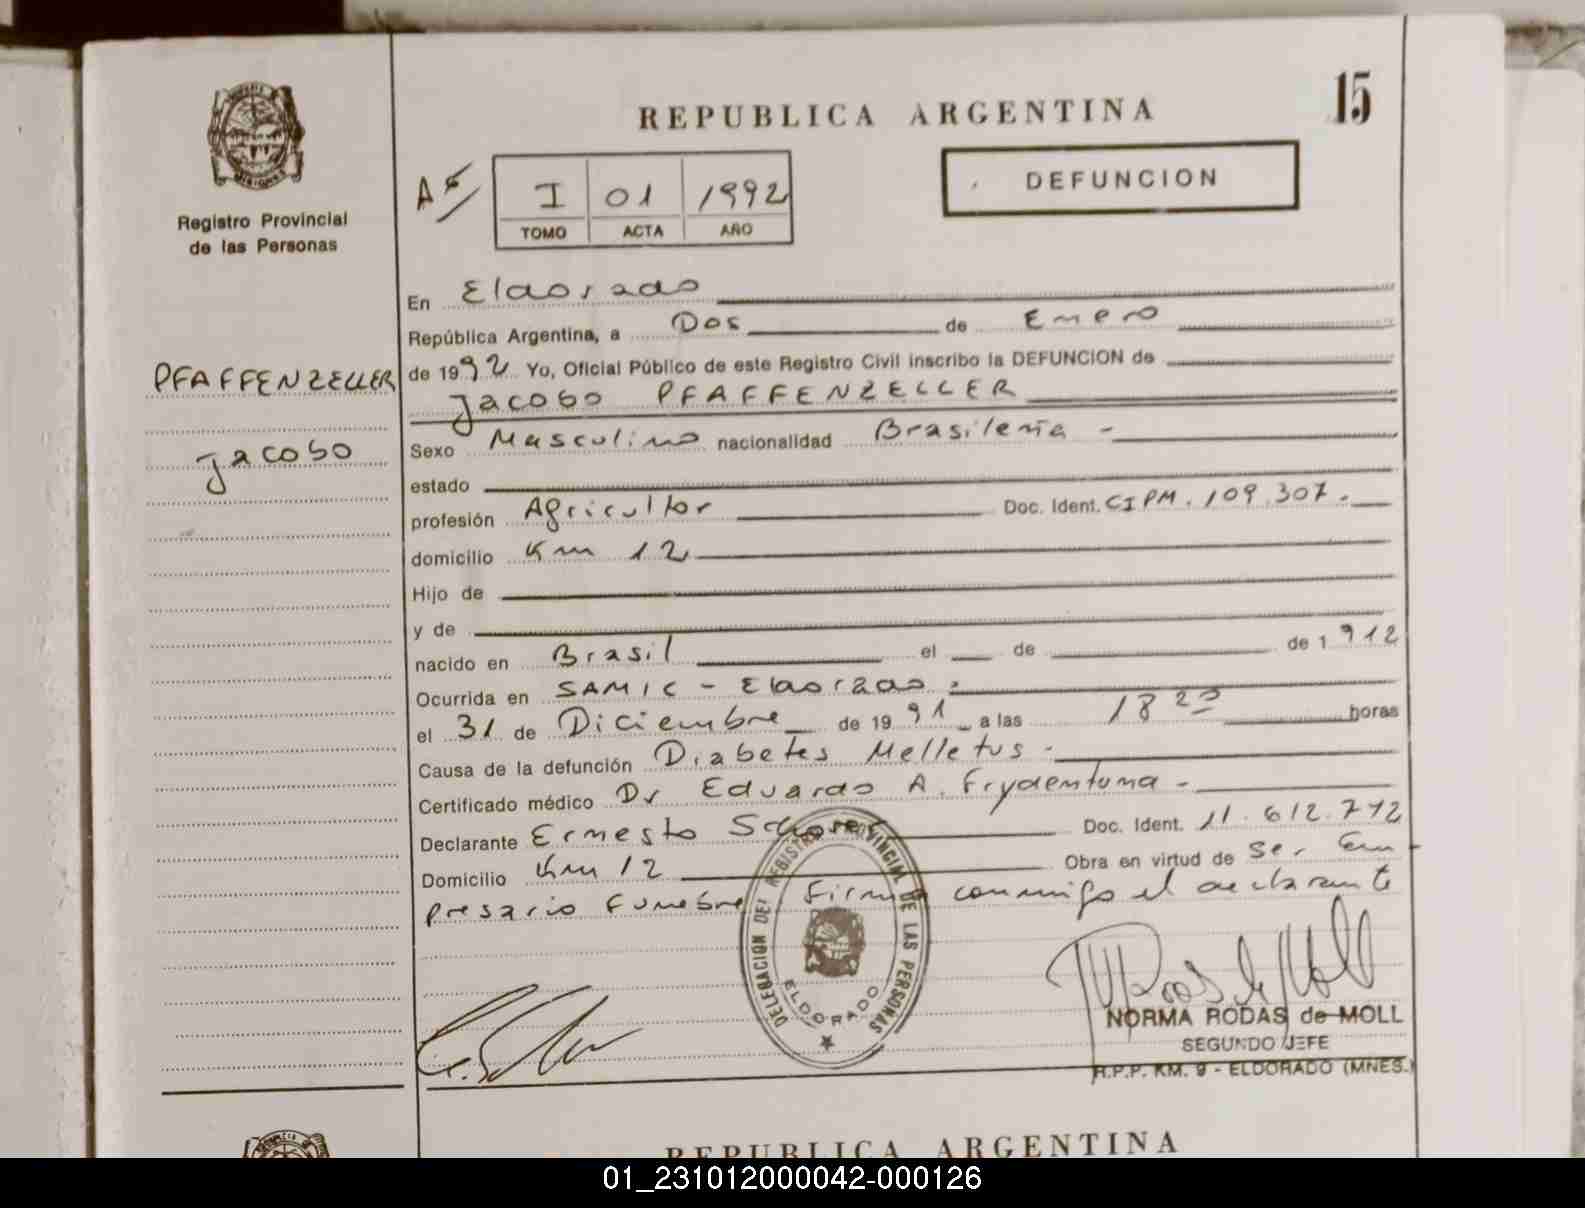 15
REPUBLICA ARGENTINA
DEFUNCION
MISIONES
Registro Provincial
de las Personas
I 01 1992
TOMO ACTA AÑO
En Eldorado
República Argentina, a Dos de Enero
de 1992 Yo, Oficial Público de este Registro Civil inscribo la DEFUNCION de
PFAFFENZELLER
Jacobo
Jacobo PFAFFENZELLER
Sexo Masculino nacionalidad Brasileña -
estado
profesión Agricultor Doc. Ident. CIPM. 109.307.
domicilio Km 12
Hijo de
y de
nacido en Brasil el de de 1912
Ocurrida en SAMIC - Eldorado.
el 31 de Diciembre de 1991 a las 18 horas
Causa de la defunción Diabetes Melletus.
Certificado médico Dr Eduardo A. -
Declarante Ernesto Doc. Ident. 11.612.772
Domicilio Km 12 Obra en virtud de Ser Em
presario Funebre Firma conmigo el declarante
DELEGACION DEL REGISTRO PROVINCIAL DE LAS PERSONAS
ELDORADO
NORMA RODAS de MOLL
SEGUNDO JEFE
R.P.P. KM. 9 - ELDORADO (MNES.)
REPUBLICA ARGENTINA
01_231012000042-000126